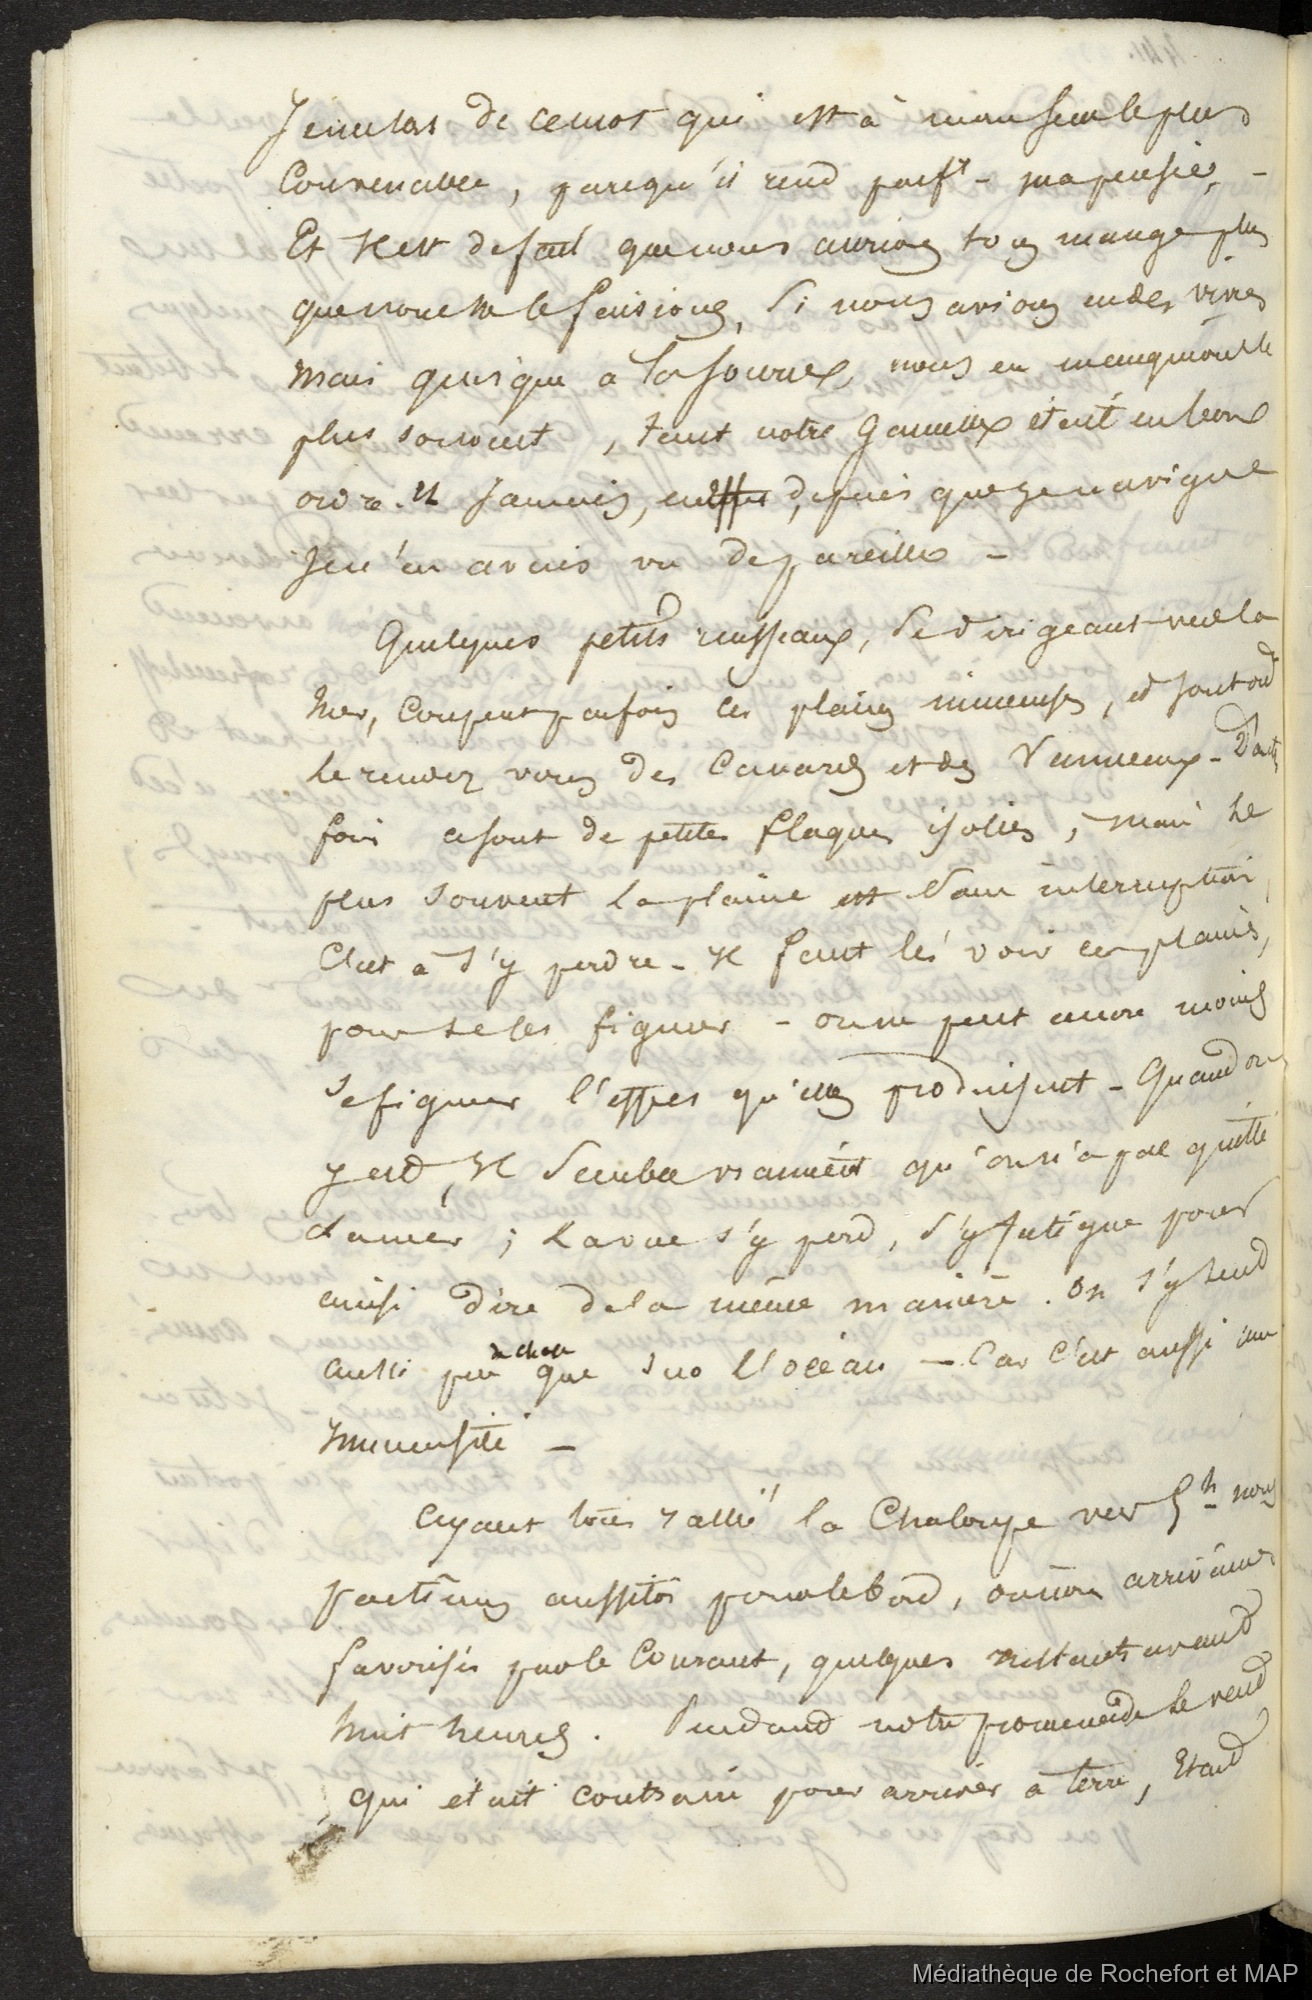 Je me sers de ce mot qui est à mon sens le plus
Convenable, parcequ'il rend parft - ma pensée. -
Et il est de fait que nous aurions tous mangé plus
que nous ne le faisions, si nous avions eu des vivres
mais quoique à la journée, nous en manquions le
plus souvent, tant notre Gamelle était en bon
ordre. Et Jamais, depuis que je navigue
Je n'en avais vu de pareille -
Quelques petits ruisseaux, se dirigeant vers la
Mer, coupent parfois ces plaines immenses, et sont
le rendez vous des Canards et des Vanneaux - D'autres
fois ce sont de petites flaques isolées, mais le
plus souvent la plaine est sans interruption,
C'est à s'y perdre - Il faut les voir ces plaines,
pour se les figurer - on ne peut encore moins
se figurer l'effet qu'elles produisent - Quand on
y est, Il semble vraiment qu'on n'a pas quitté
la mer ; La vue s'y perd, s'y fatigue pour
ainsi dire de la même manière. On s'y sent
aussi peu de chose que sur l'océan - Car c'est aussi une
Immensité -
Ayant tous rallié la Chaloupe vers 5h nous
partîmes aussitôt pour le bord, où nous arrivâmes
favorisés par le Courant, quelques instants avant
huit heures. Pendant notre promenade le vent
qui était contraire pour arriver à terre, Etant
Médiathèque de Rochefort et MAP